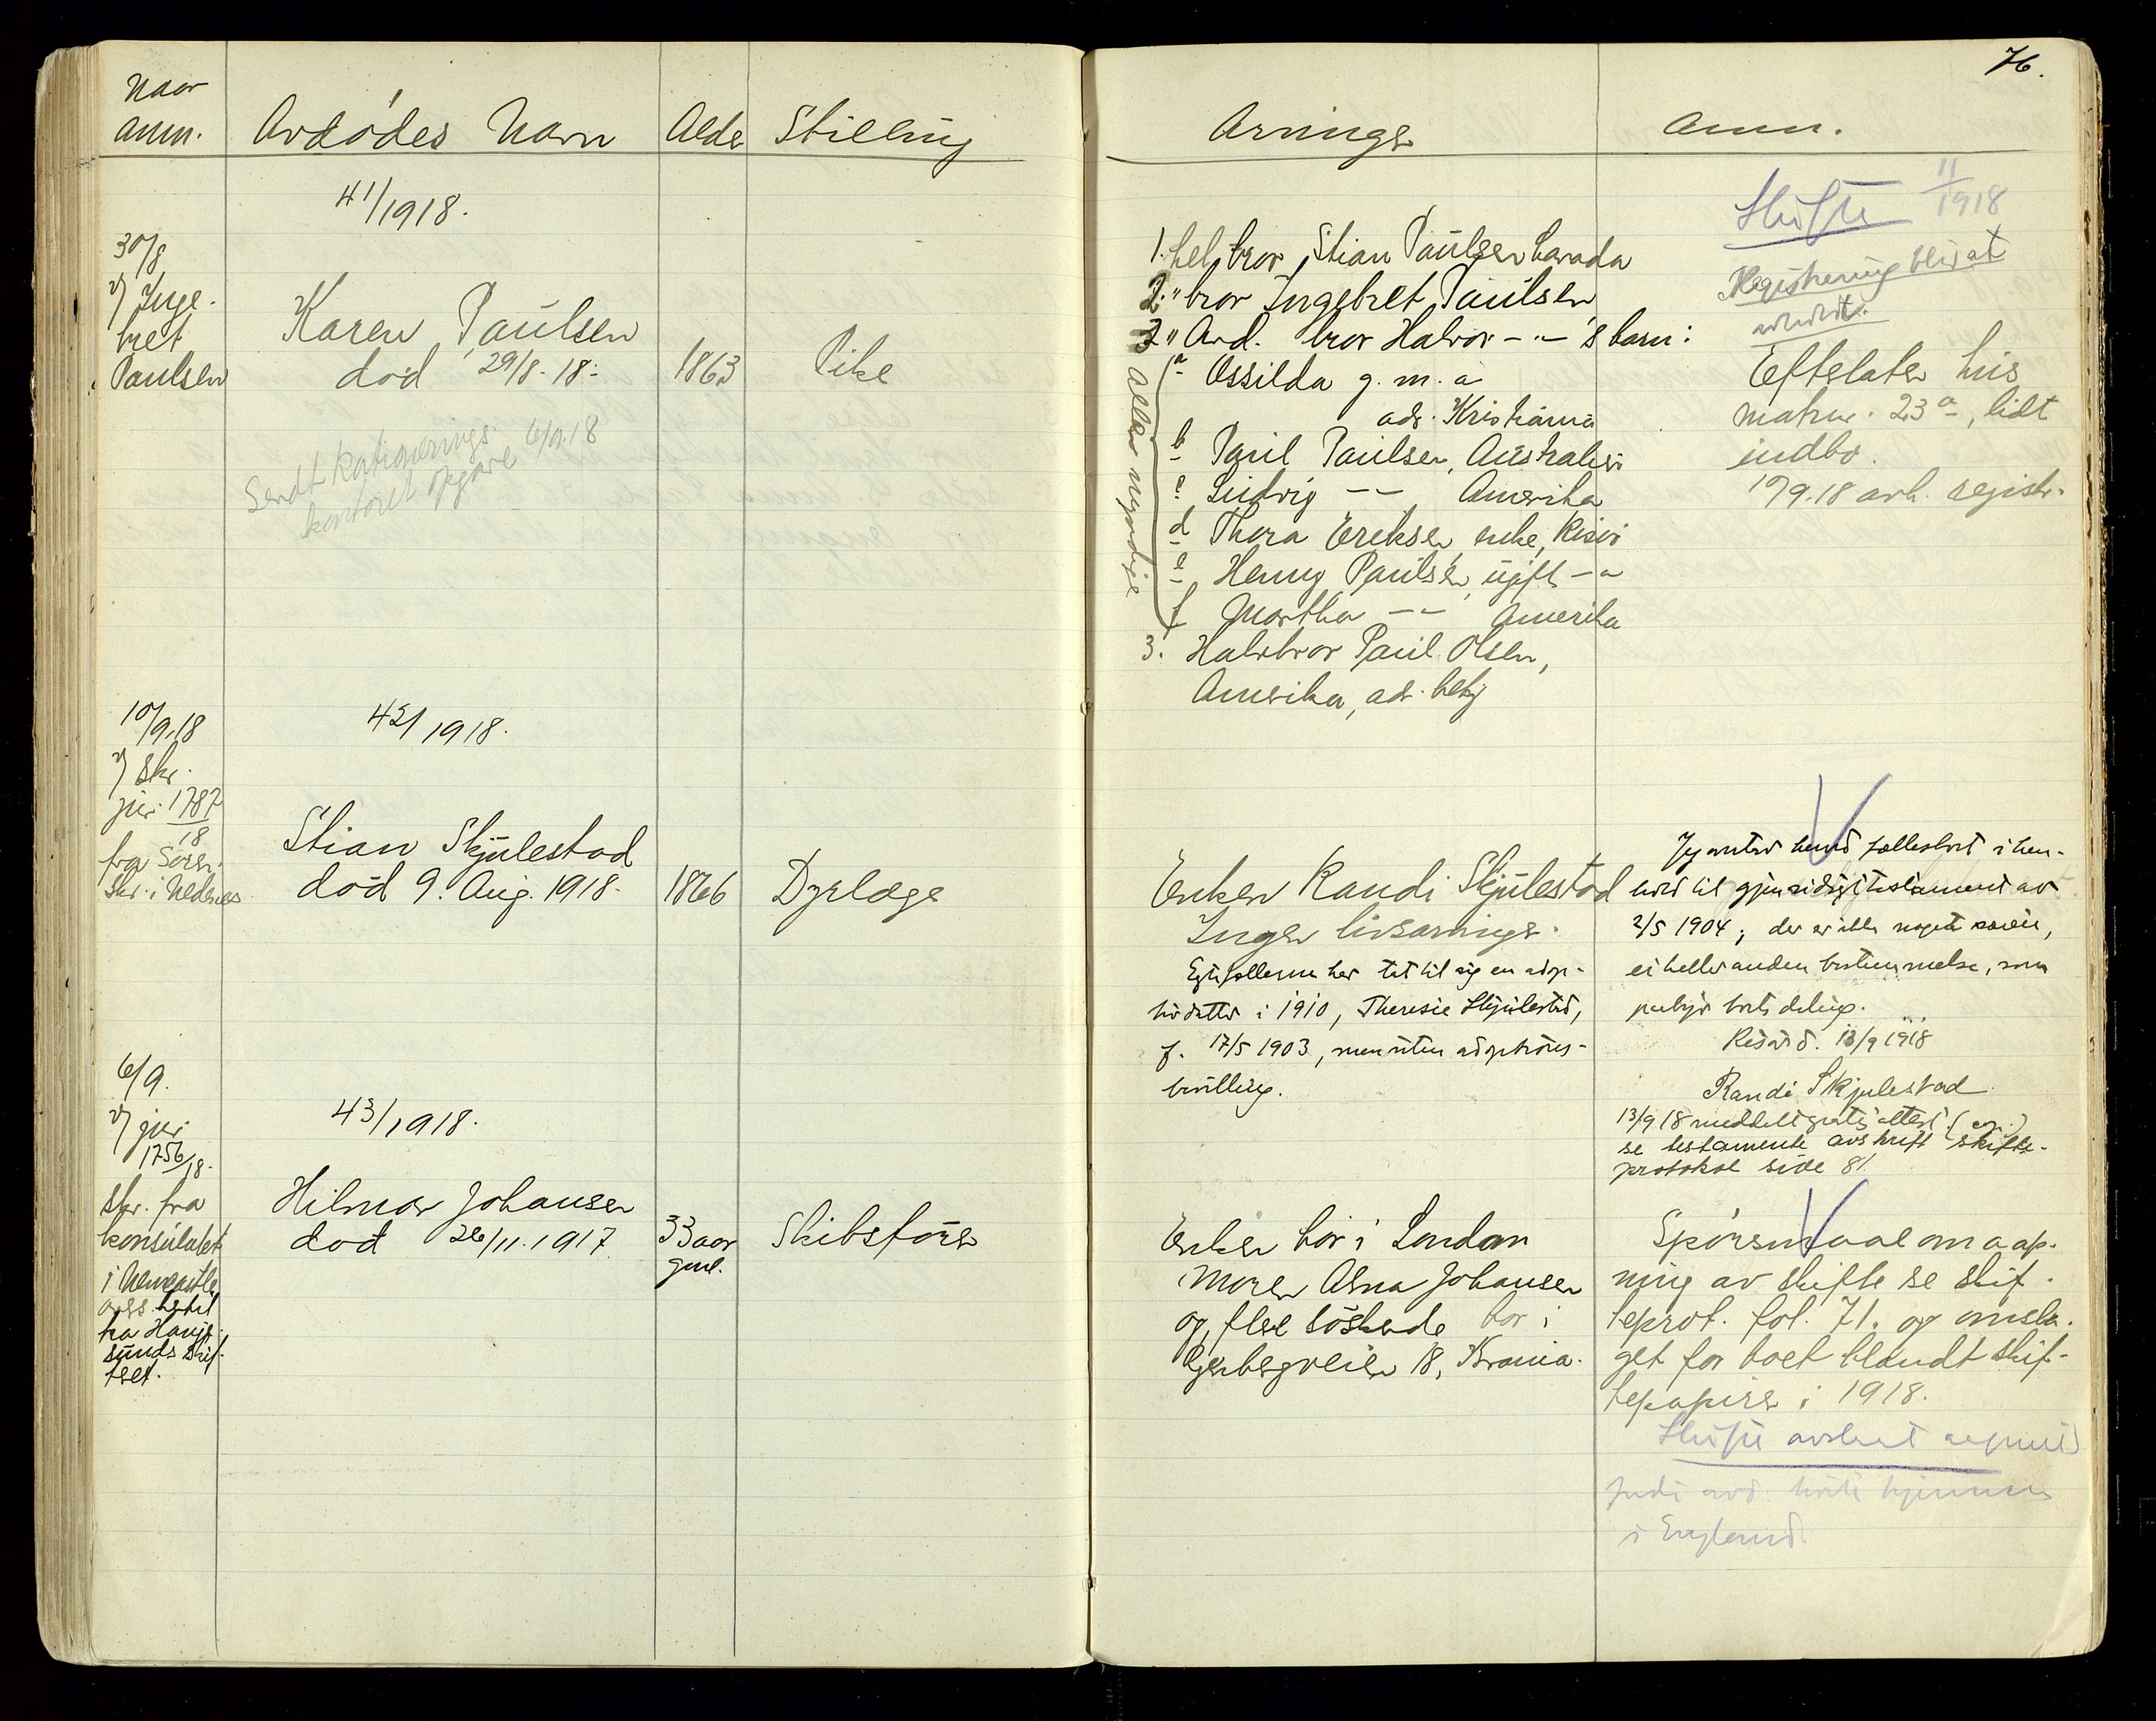 76.
Naar
anm.
Avdødes Navn
Alder
Stilling
Arvinger
Anm.
41/1918.
30/8
v/ Inge-
bret
Paulsen
Karen Paulsen
død 29/8-18.
1863
Pike
Sendt Rationerings-
kontoret opgave 6/9.18
1. hel bror Stian Paulsen Canada
2. " bror Ingebret Paulsen
3 " Avd. bror Halvor -"- 's barn:
Alle myndige
a Ossilda g. m. a
adr. Kristiania
b Paul Paulsen, Australien
c Ludvig -"- Amerika
d Thora Eriksen, enke, Risør
e Henny Paulsen, ugift -"-
f Martha -"- Amerika
3. Halvbror Paul Olsen,
Amerika, adr. bekj
Skifte 11/1918
Registrering blir at
Efterlater hus
matr. nr. 23a, lidt
indbo.
10/9.18 avh. registr.
42/1918.
10/9.18
v/ Skr.
jur. 1787/18
fra Soren-
skr. i Nedenes
Stian Skjulestad
død 9. Aug. 1918.
1866
Dyrlæge
Enken Randi Skjulestad
Ingen livsarvinger.
Egtefollerne har tat til sig en adop-
tivdatter i 1910, Theresie Skjulestad,
f. 17/5 1903, men uten adoptions-
bevilling.
Jeg overtar hermed fællesboet i hen-
hold til gjensidigt testament av
2/5 1904; der er ikke noget særeie,
ei heller anden bestemmelse, som
paabyr boets deling.
Risør d. 13/9 1918
Randi Skjulestad
13/9 18 meddelt gratis attest.
se testamente avskrift skifte-
protokol side 81.
43/1918.
6/9.
v/ jur.
1756/18.
skr. fra
konsulatet
i Newcastle
fra Hauge-
sunds skif-
teret.
Hilmar Johansen
død 26/11.1917
33 aar
gml.
Skibsfører
Enken bor i London
Moren Asna Johansen
og flere søskende bor i
18, Krania.
Spørsmaal om aap-
ning av skifte se skif-
teprot. fol. 71. og omsla-
get for boet blandt skif-
tepapirer i 1918.
Skifte avsluttet
fordi avd. hadde hjemme
i England.